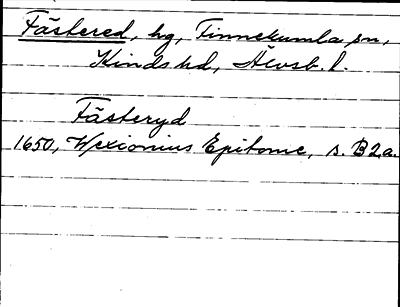 Fästered, hg, Finnekumla sn,
Kinds hd, Älvsb. l.
Fästeryd
1650, Wexionius Epitome, s. B2a.